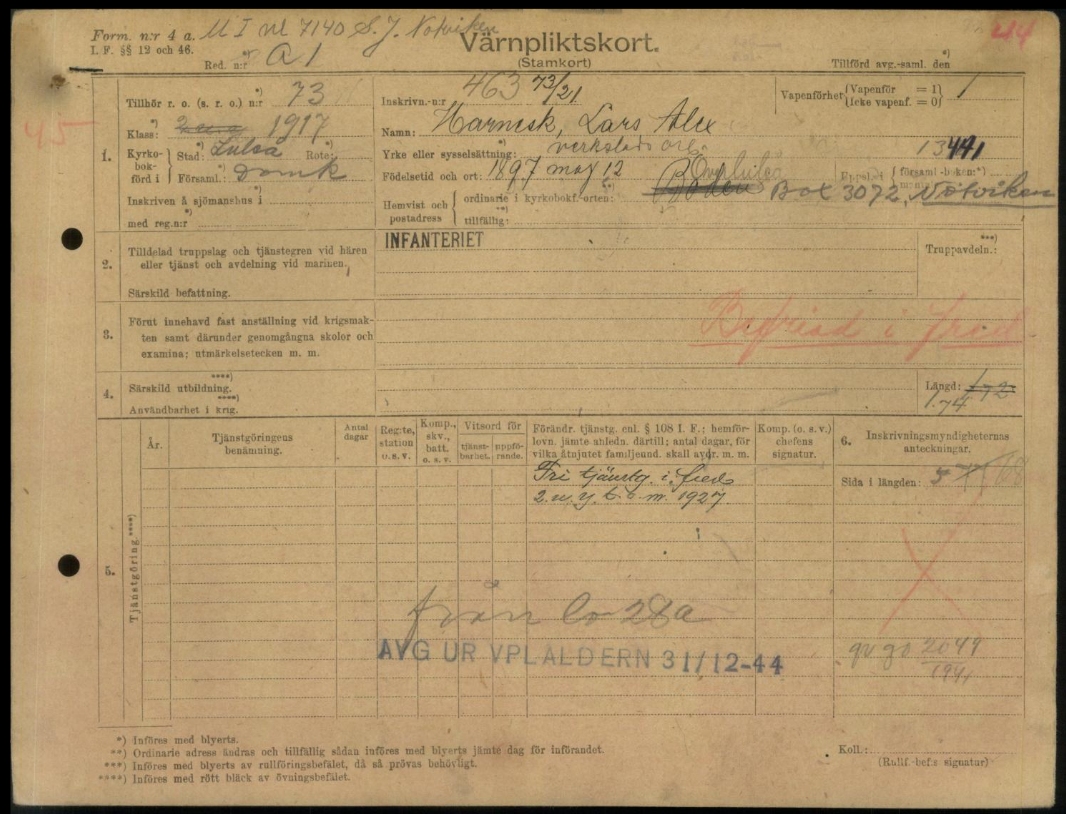 Form. n:r 4 a. M I nl 7140 S. J. Notviken
I. F. §§ 12 och 46.
Red. n:r *) A 1
Värnpliktskort.
(Stamkort)
Tillförd avg.-saml. den *)
Tillhör r. o. (s. r. o.) n:r *) 73
Inskrivn.-n:r 463 73/21
Vapenförhet {(Vapenför = 1) 1
(Icke vapenf. = 0)
45
1.
Klass: *) 1917
Namn: Harnesk, Lars Alex
Kyrko-
bok-
förd i
Stad: *) Luleå Rote: *)
Yrke eller sysselsättning: *) verkstads arb.
13441
Församl.: *) Domk
Födelsetid och ort: 1897 maj 12 Överluleå
församl.-boken: *)
Inskriven å sjömanshus i *)
med reg.n:r *)
Hemvist och
postadress
ordinarie i kyrkobokf.-orten: **) Boden Box 3072, Notviken
tillfällig: **)
2.
Tilldelad truppslag och tjänstegren vid hären
eller tjänst och avdelning vid marinen.
INFANTERIET
Truppavdeln.: ***)
Särskild befattning.
3.
Förut innehavd fast anställning vid krigsmak-
ten samt därunder genomgångna skolor och
examina; utmärkelsetecken m. m.
Befriad i fred
4.
Särskild utbildning. ****)
Användbarhet i krig. ****)
Längd: 172
1.74
5.
Tjänstgöring.****)
År.
Tjänstgöringens
benämning.
Antal
dagar
Reg:te,
station
o.s.v.
Komp.,
skv.,
batt.
o. s. v.
Vitsord för
tjänst-
barhet.
uppfö-
rande.
Förändr. tjänstg. enl. § 108 I. F.; hemför-
lovn. jämte anledn. därtill; antal dagar, för
vilka åtnjutet familjeund. skall avdr. m. m.
Komp. (o. s. v.)
chefens
signatur.
6. Inskrivningsmyndigheternas
anteckningar.
Fri tjänstg. i fred
1927
Sida i längden: 5
från Lo 28a
AVG UR VPLÅLDERN 31/12-44
2049
1941
*) Införes med blyerts.
**) Ordinarie adress ändras och tillfällig sådan införes med blyerts jämte dag för införandet.
***) Införes med blyerts av rullföringsbefälet, då så prövas behövligt.
****) Införes med rött bläck av övningsbefälet.
Koll.:
(Rullf.-bef:s signatur)